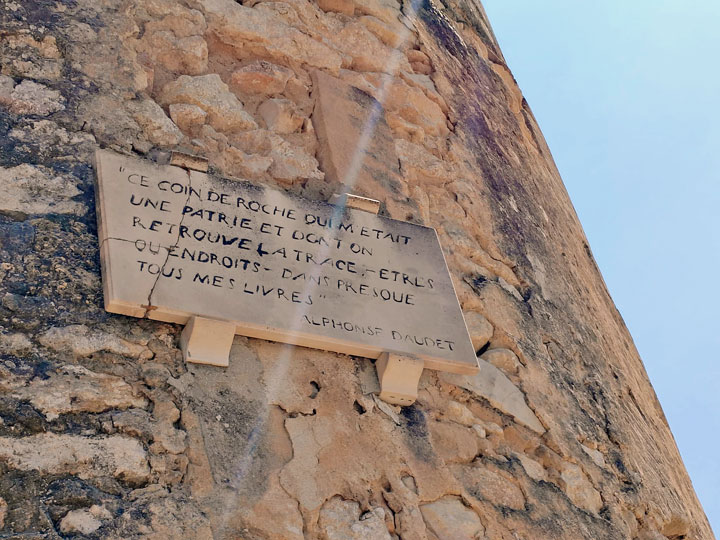 "CE COIN DE ROCHE QUI M ETAIT
UNE PATRIE ET DONT ON
RETROUVE LA TRACE,-ETRES
OU ENDROITS- DANS PRESQUE
TOUS MES LIVRES"
ALPHONSE DAUDET